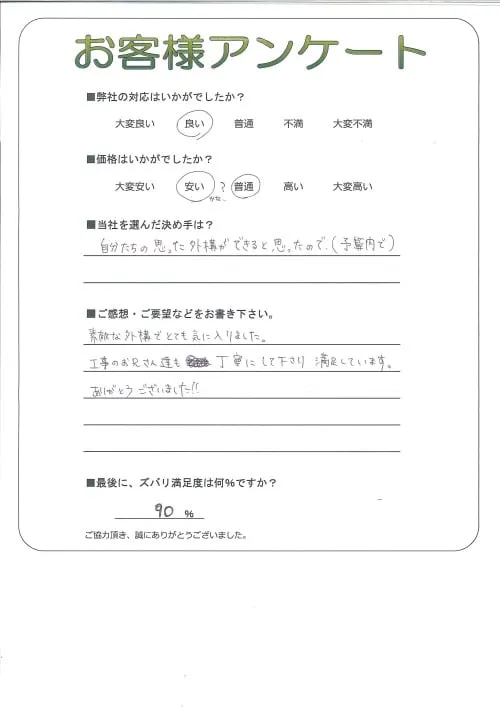 お客様アンケート
■弊社の対応はいかがでしたか?
大変良い 良い 普通 不満 大変不満
■価格はいかがでしたか?
大変安い 安い ? 普通 高い 大変高い
かな。
■当社を選んだ決め手は?
自分たちの思った外構ができると思ったので。(予算内で)
■ご感想・ご要望などをお書き下さい。
素敵な外構でとても気に入りました。
工事のお兄さん達も 丁寧にして下さり 満足しています。
ありがとうございました!!
■最後に、ズバリ満足度は何%ですか?
90 %
ご協力頂き、誠にありがとうございました。